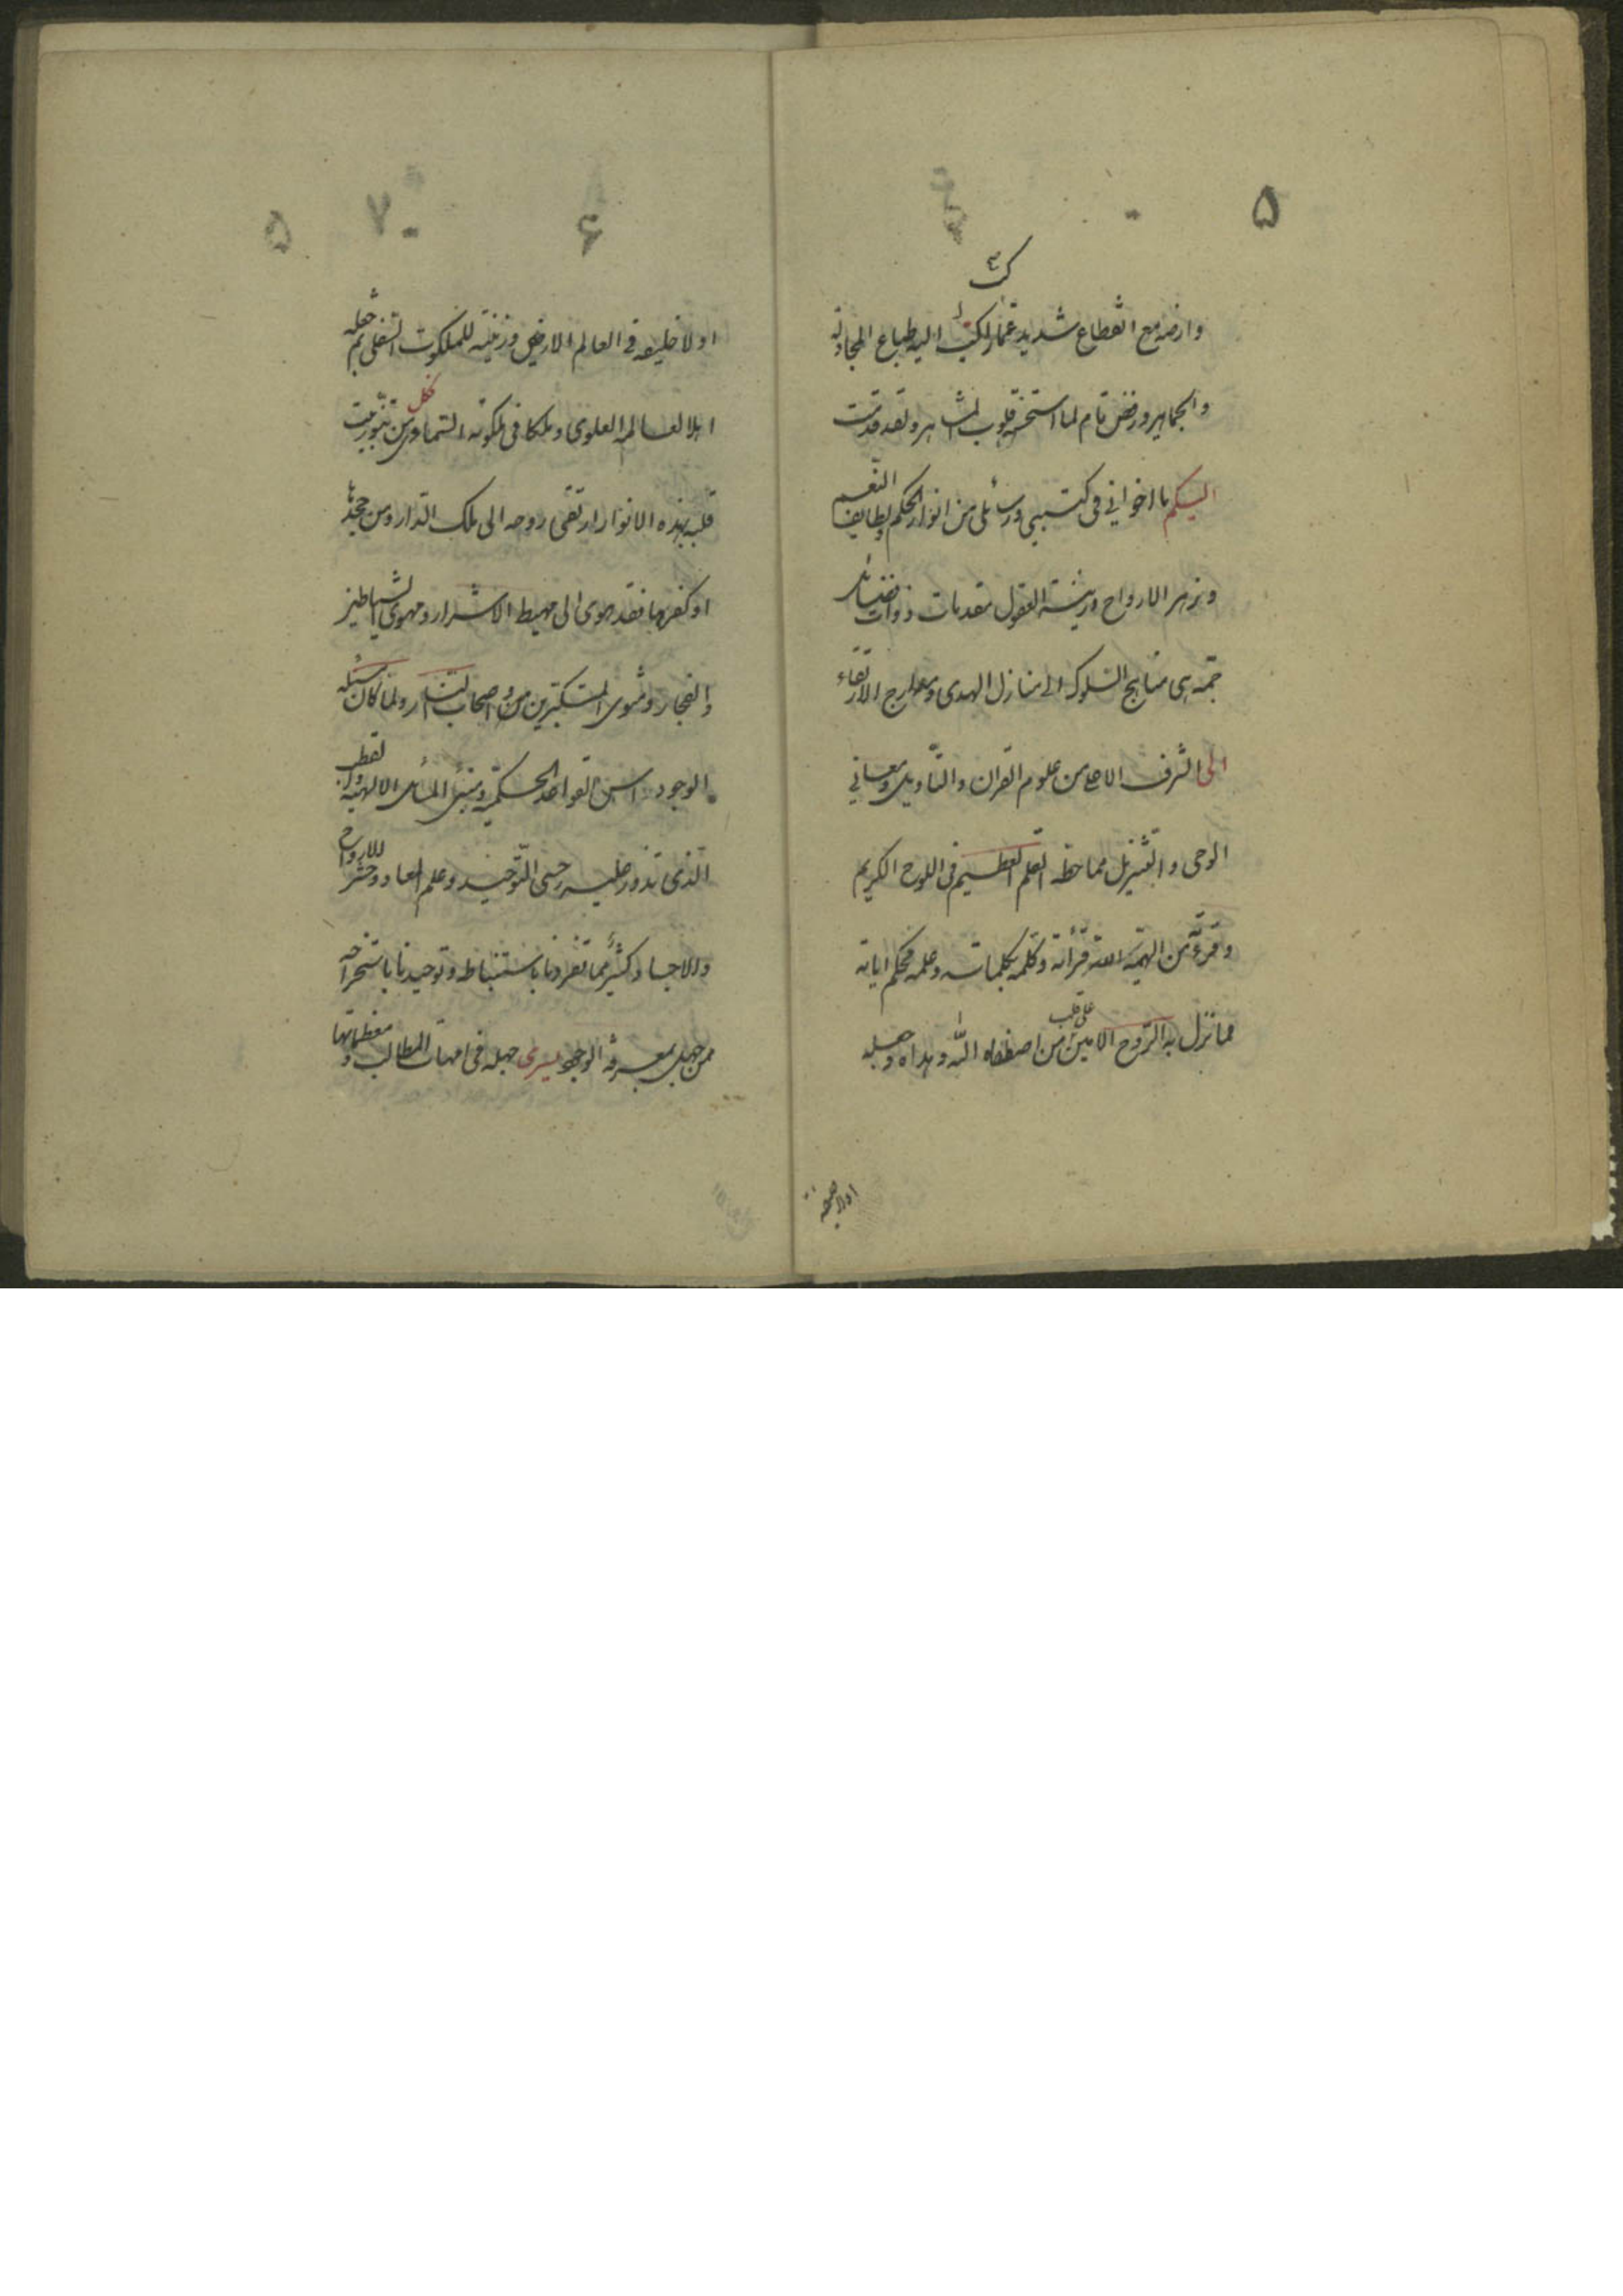 ۵
وارضه مع انقطاع شديد عما اكب اليه طباع المجادلة
والجماهير ورفض تام لما استحسنه قلوب المشاهير ولقد قدمت
اليكم يا اخواني في كتبي ورسائلي من انوار الحكم ولطايف النعم
وزهر الارواح وزينة العقول مقدمات ذوات فضائل
جمة هي مناهج السلوك الى منازل الهدى ومعارج الارتقاء
الى الشرف الاعلى من علوم القران والتاويل ومعاني
الوحي والتنزيل مما خطه القلم العظيم في اللوح الكريم
وقرءه من الهمه الله قرأنه وكلمه بكلماته وعلمه محكم اياته
مما نزل به الروح الامين على قلب من اصطفاه الله وهداه وجعله
اولا خليفه
۶ ۷ ۵
اولا خليفه في العالم الارضي وزينة للملكوت السفلي ثم جعله
اهلا لعالمه العلوي وملكا في ملكوته السماوي فكل من تنورت بيت
قلبه بهذه الانوار ارتقى روحه الى تلك الدار ومن جحدها
او كفر بها فقد هوى الى مهبط الاشرار ومهوى الشياطين
والفجار ومثوى المتكبرين واصحاب النار ولما كان مسئلة
الوجود اس القواعد الحكمية ومبنى المسائل الالهية والقطب
الذي تدور عليه رحى التوحيد وعلم المعاد وحشر للارواح
والاجساد وكثير مما تفردنا باستنباطه وتوحدنا باستخراجه
فمن جهل بمعرفة الوجود يسري جهله في امهات المطالب ومعظماتها